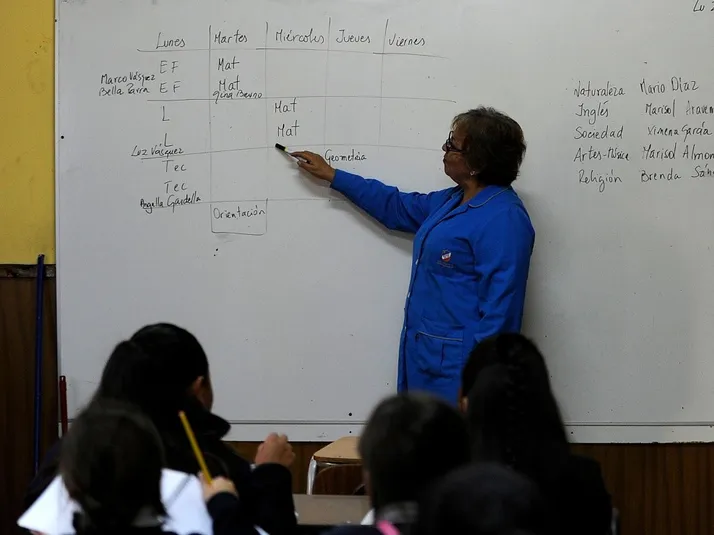 Lunes Martes Miércoles Jueves Viernes
EF Mat
Marco Vásquez
Bella Parra EF Mat
Gina Berno
L Mat
L Mat
Luz Vásquez
Tec Geometría
Tec
Angella Gardella
Orientación
Lu
Naturaleza Mario Díaz
Inglés Marisol
Sociedad Ximena García
Artes-Música Marisol
Religión Brenda